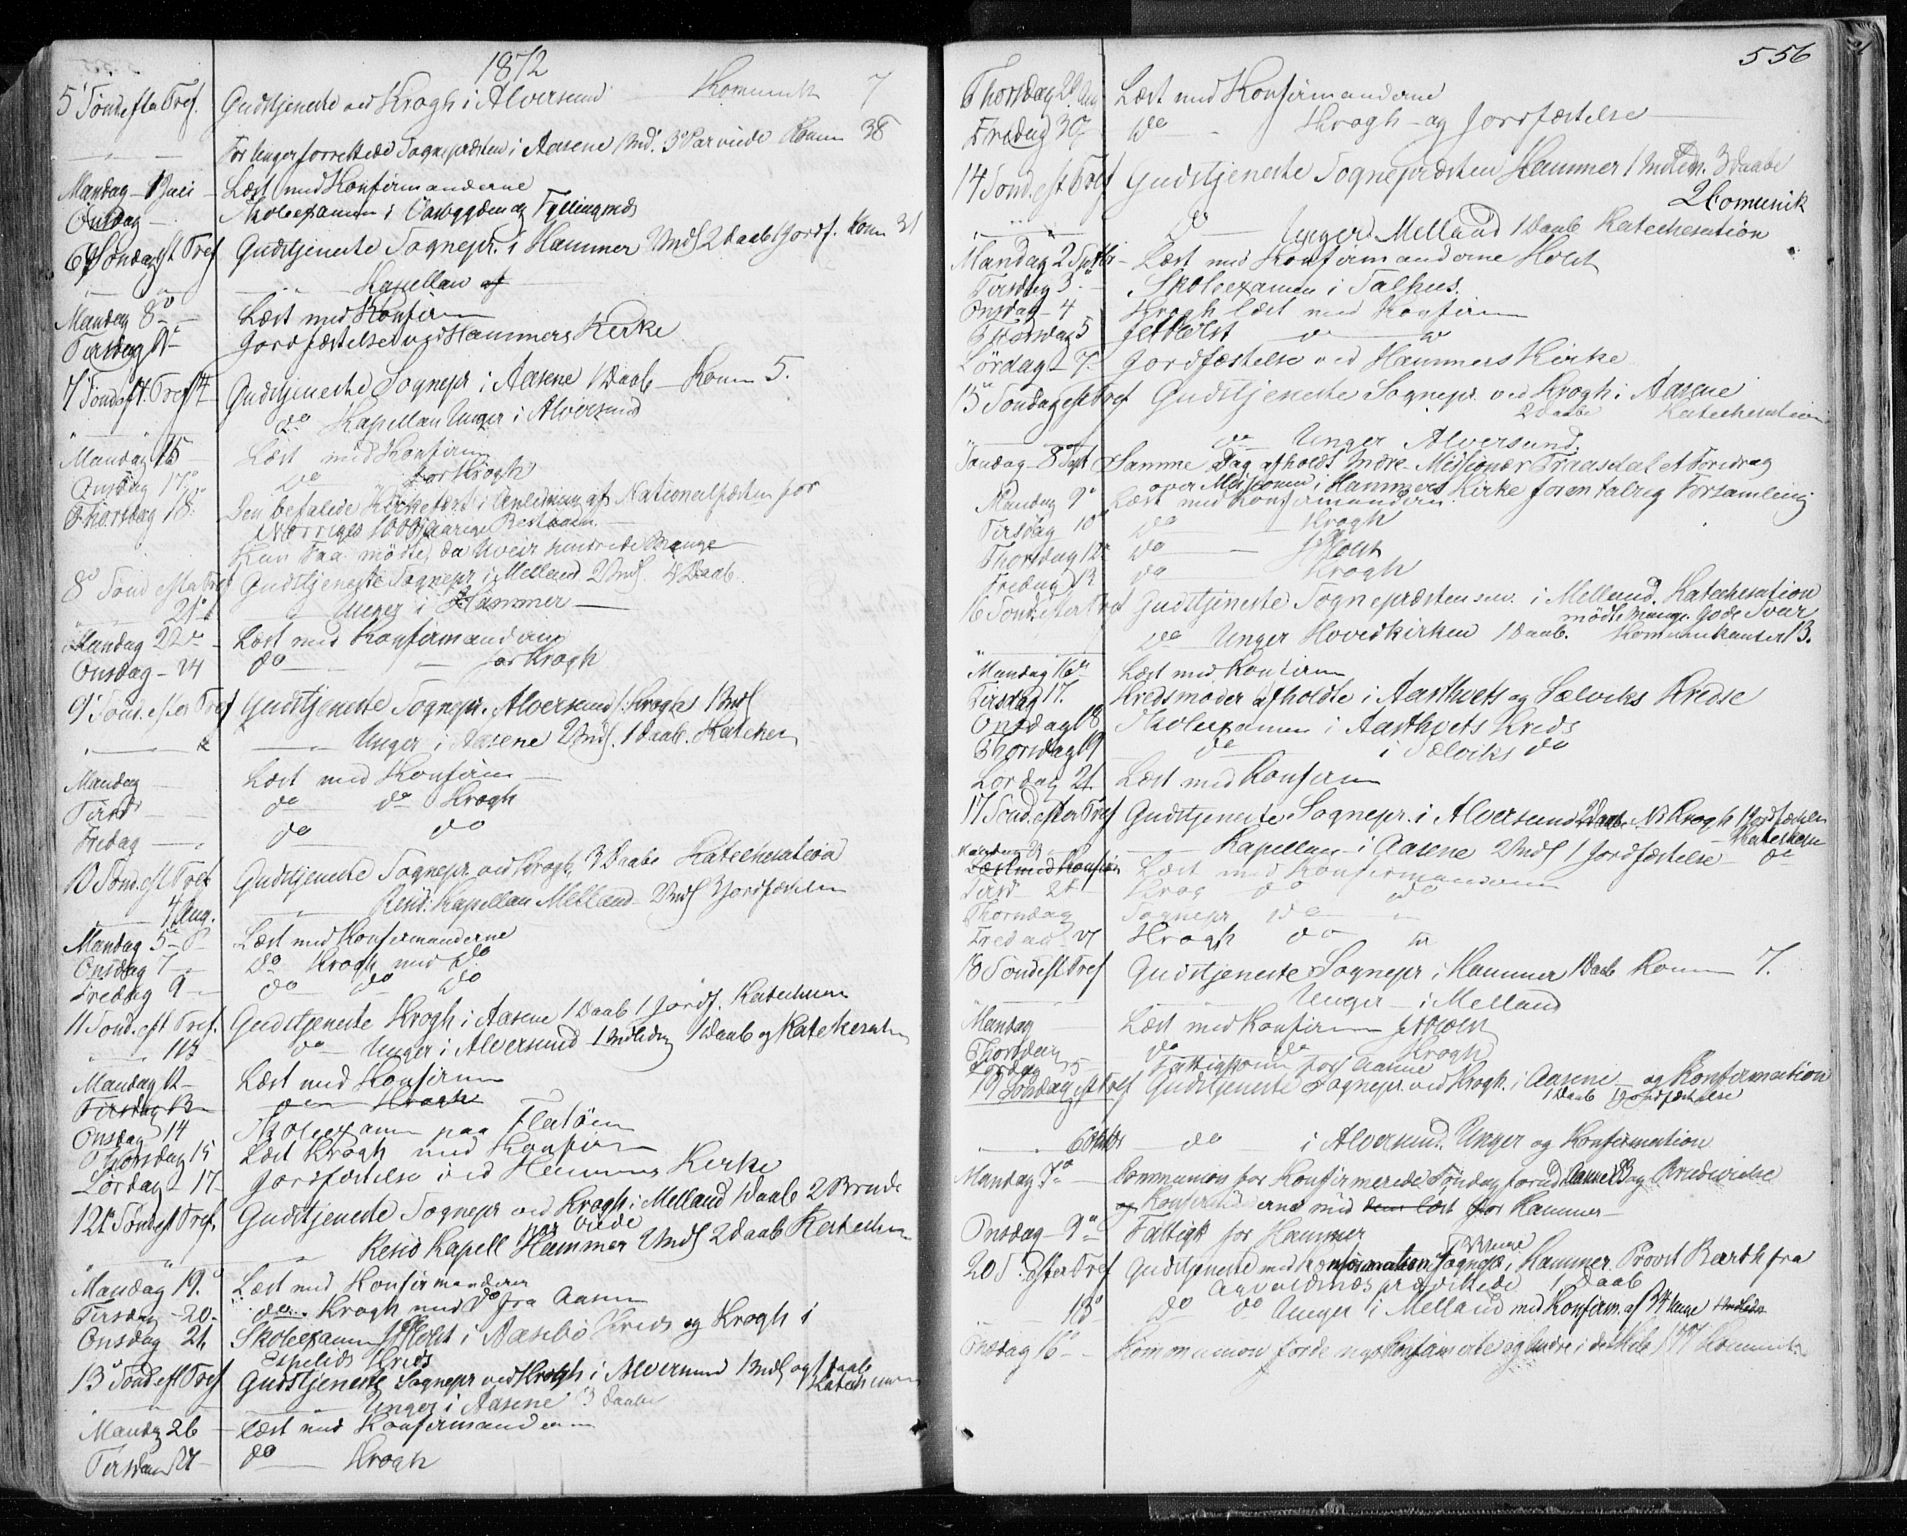 1872
5' Sönd efter Tref. Gudstjeneste ved Krogh i Alversund Komunik 7
For Unger forrettede Sognepræsten i Aasene 1 Indl. 3 Par viede Komm 38
Mandag 1 Juli Læst med Konfirmanderne
Onsdag Skoleexamen i
6 Söndag eft Tref Gudstjeneste Sognepr. i Hammer 2 Indl 2 Daab 1 Jordf. Kom 31
Kapellan
Mandag 8de Læst med Konfirm
Tirsdag 9 Jordfæstelse ved Hammers Kirke
7 Sönd eft. Tref Gudstjeneste Sognepr i Aasene 1 Daab Kom 5.
do Kapellan Unger i Alversund
Mandag 15 Læst med Konfirm
Onsdag 17 do for Krogh
Thorsdag 18. Den befalede Kirkefest i Anledning af Nationalfesten for
Norriges 1000 jaarige Bestaaen.
Kun Faa mödte, da Uveir hindrede Mange
8 Sönd efter Tref Gudstjeneste Sognepr i Melland 2 Indl. 4 Daab.
21 Unger i Hammer
Mandag 22de Læst med Konfirmanderne
Onsdag 24 do for Krogh
9 Sönd. efter Tref Gudstjeneste Sognepr. Alversund f. Krogh 1 Indl
Unger i Aasene 2 Indl. 1 Daab. Katechs
Mandag Læst med Konfirm
Tirsd do do Krogh
Fredag do do
10 Sönd. eft Tref Gudstjeneste Sognepr ved Krogh 3 Daabe Katechesation
4 Aug. Resid. Kapellan Melland 2 Indl 3 Jordfæstelse
Mandag 5 Læst med Konfirmanderne
Onsdag 7 do Krogh med do
Fredag 9 do do do
11 Sönd. eft Tref. Gudstjeneste Krogh i Aasene 1 Daab 1 Jordf. Katechesa
11 do Unger i Alversund 1 Indledn 1 Daab og Katechesation
Mandag 12 Læst med Konfirm
Tirsdag 13 do Krogh
Onsdag 14 Skoleexamen paa Flatöen
Thorsdag 15 Læst Krogh med Konfirm
Lørdag 17 Jordfæstelse ved Hammers Kirke
12te Sönd eft Tref. Gudstjeneste Sognepr ved Krogh i Melland 1 Daab 2 Brude
par viede
Resid Kapell Hammer 1 Indl 2 Daab Katechesa
Mandag 19. Læst med Konfirmanderne
Tirsdag 20 do. Krogh med do fra Aasene
Onsdag 21 Skoleexamen Holst i Aasebö Kreds og Krogh i
Espelids Kreds
13 Sönd eft Tref Gudstjeneste Sognepr ved Krogh i Alversund 1 Indl og 1 Daab
Katechesa
Unger i Aasene 3 Daabe
Mandag 26 Læst med Konfirmanderne
Tirsdag 27 do Krogh
556
Thorsdag 29 Aug Læst med Konfirmanderne
Fredag 30 do Krogh og Jordfæstelse
14 Sönd. eft Tref Gudstjeneste Sognepræsten Hammer 1 Indledn. 3 Daabe
2 Comunik
do Unger Melland 1 Daab Katechesation
Mandag 2 Septbr Læst med Konfirmanderne Holst
Tirsdag 3 Skoleexamen i Salhus.
Onsdag 4 Krogh læst med Konfirm
Thorsdag 5 Holst do do
Lördag 7 Jordfæstelse ved Hammers Kirke
15 Söndag eft Tref Gudstjeneste Sognepr. ved Krogh i Aasene
2 Daabe Katechesation
do Unger Alversund
Söndag 8 Sept Samme Dag afholdt Indre-Missionær Traasdal et Foredrag
over Missionen i Hammers Kirke for en talrig Forsamling
Mandag 9 Læst med Konfirmanderne
Tirsdag 10 do Krogh
Thorsdag 12 do Holst
Fredag 13 do Krogh
16 Sönd efter Tref Gudstjeneste Sognepræsten i Melland. Katechesation
mödte mange. Gode Svar
do Unger Hovedkirken 1 Daab. Kommunikanter 13.
Mandag 16de Læst med Konfirm
Tirsdag 17. Kredsmöder afholdte i Aasthvets og Sælviks Kredse
Onsdag 18 Skoleexamen i Aasthvets Kreds
Thorsdag 19 do i Sælviks do
Lördag 21 Læst med Konfirm
17 Sönd. efter Tref Gudstjeneste Sognepr. i Alversund Daab Krogh 1 Jordfæstelse
Katechese
Kapellan i Aasene 2 Indl 1 Jordfæstelse do
Læst med Konfirm Læst med Konfirmanderne
Tirsd 24 Krog do do
Thorsdag Sognepr do
Fredag 27 Krogh do
18 Sönd eft Tref Gudstjeneste Sognepr i Hammer 1 Daab Kom 7.
Unger i Melland
Mandag Læst med Konfirm Holst
Thorsdag do do Krogh
Lördag 5 Fattigkom for Aasene
19 Söndag eft Tref Gudstjeneste Sognepr. ved Krogh. i Aasene og Konfirmation
1 Daab Jordfæstelse
6 Oktbr do i Alversund. Unger og Konfirmation
Mandag 7de Communion for Konfirmerede Söndag forud Brudevielse
og Konfirmanderne med dem læst for Hammer
Onsdag 9de Fattigk for Hammer
20 S. efter Tref Gudstjeneste med Konfirmation Sognepr. i Hammer Provst Barth fra
1 Daab
13 do do Unger i Melland med Konfirm. af 34 Unge Indledn
Onsdag 16 Kommunion for de nykonfirmerte og Andre i det Hele 177 Kommunik